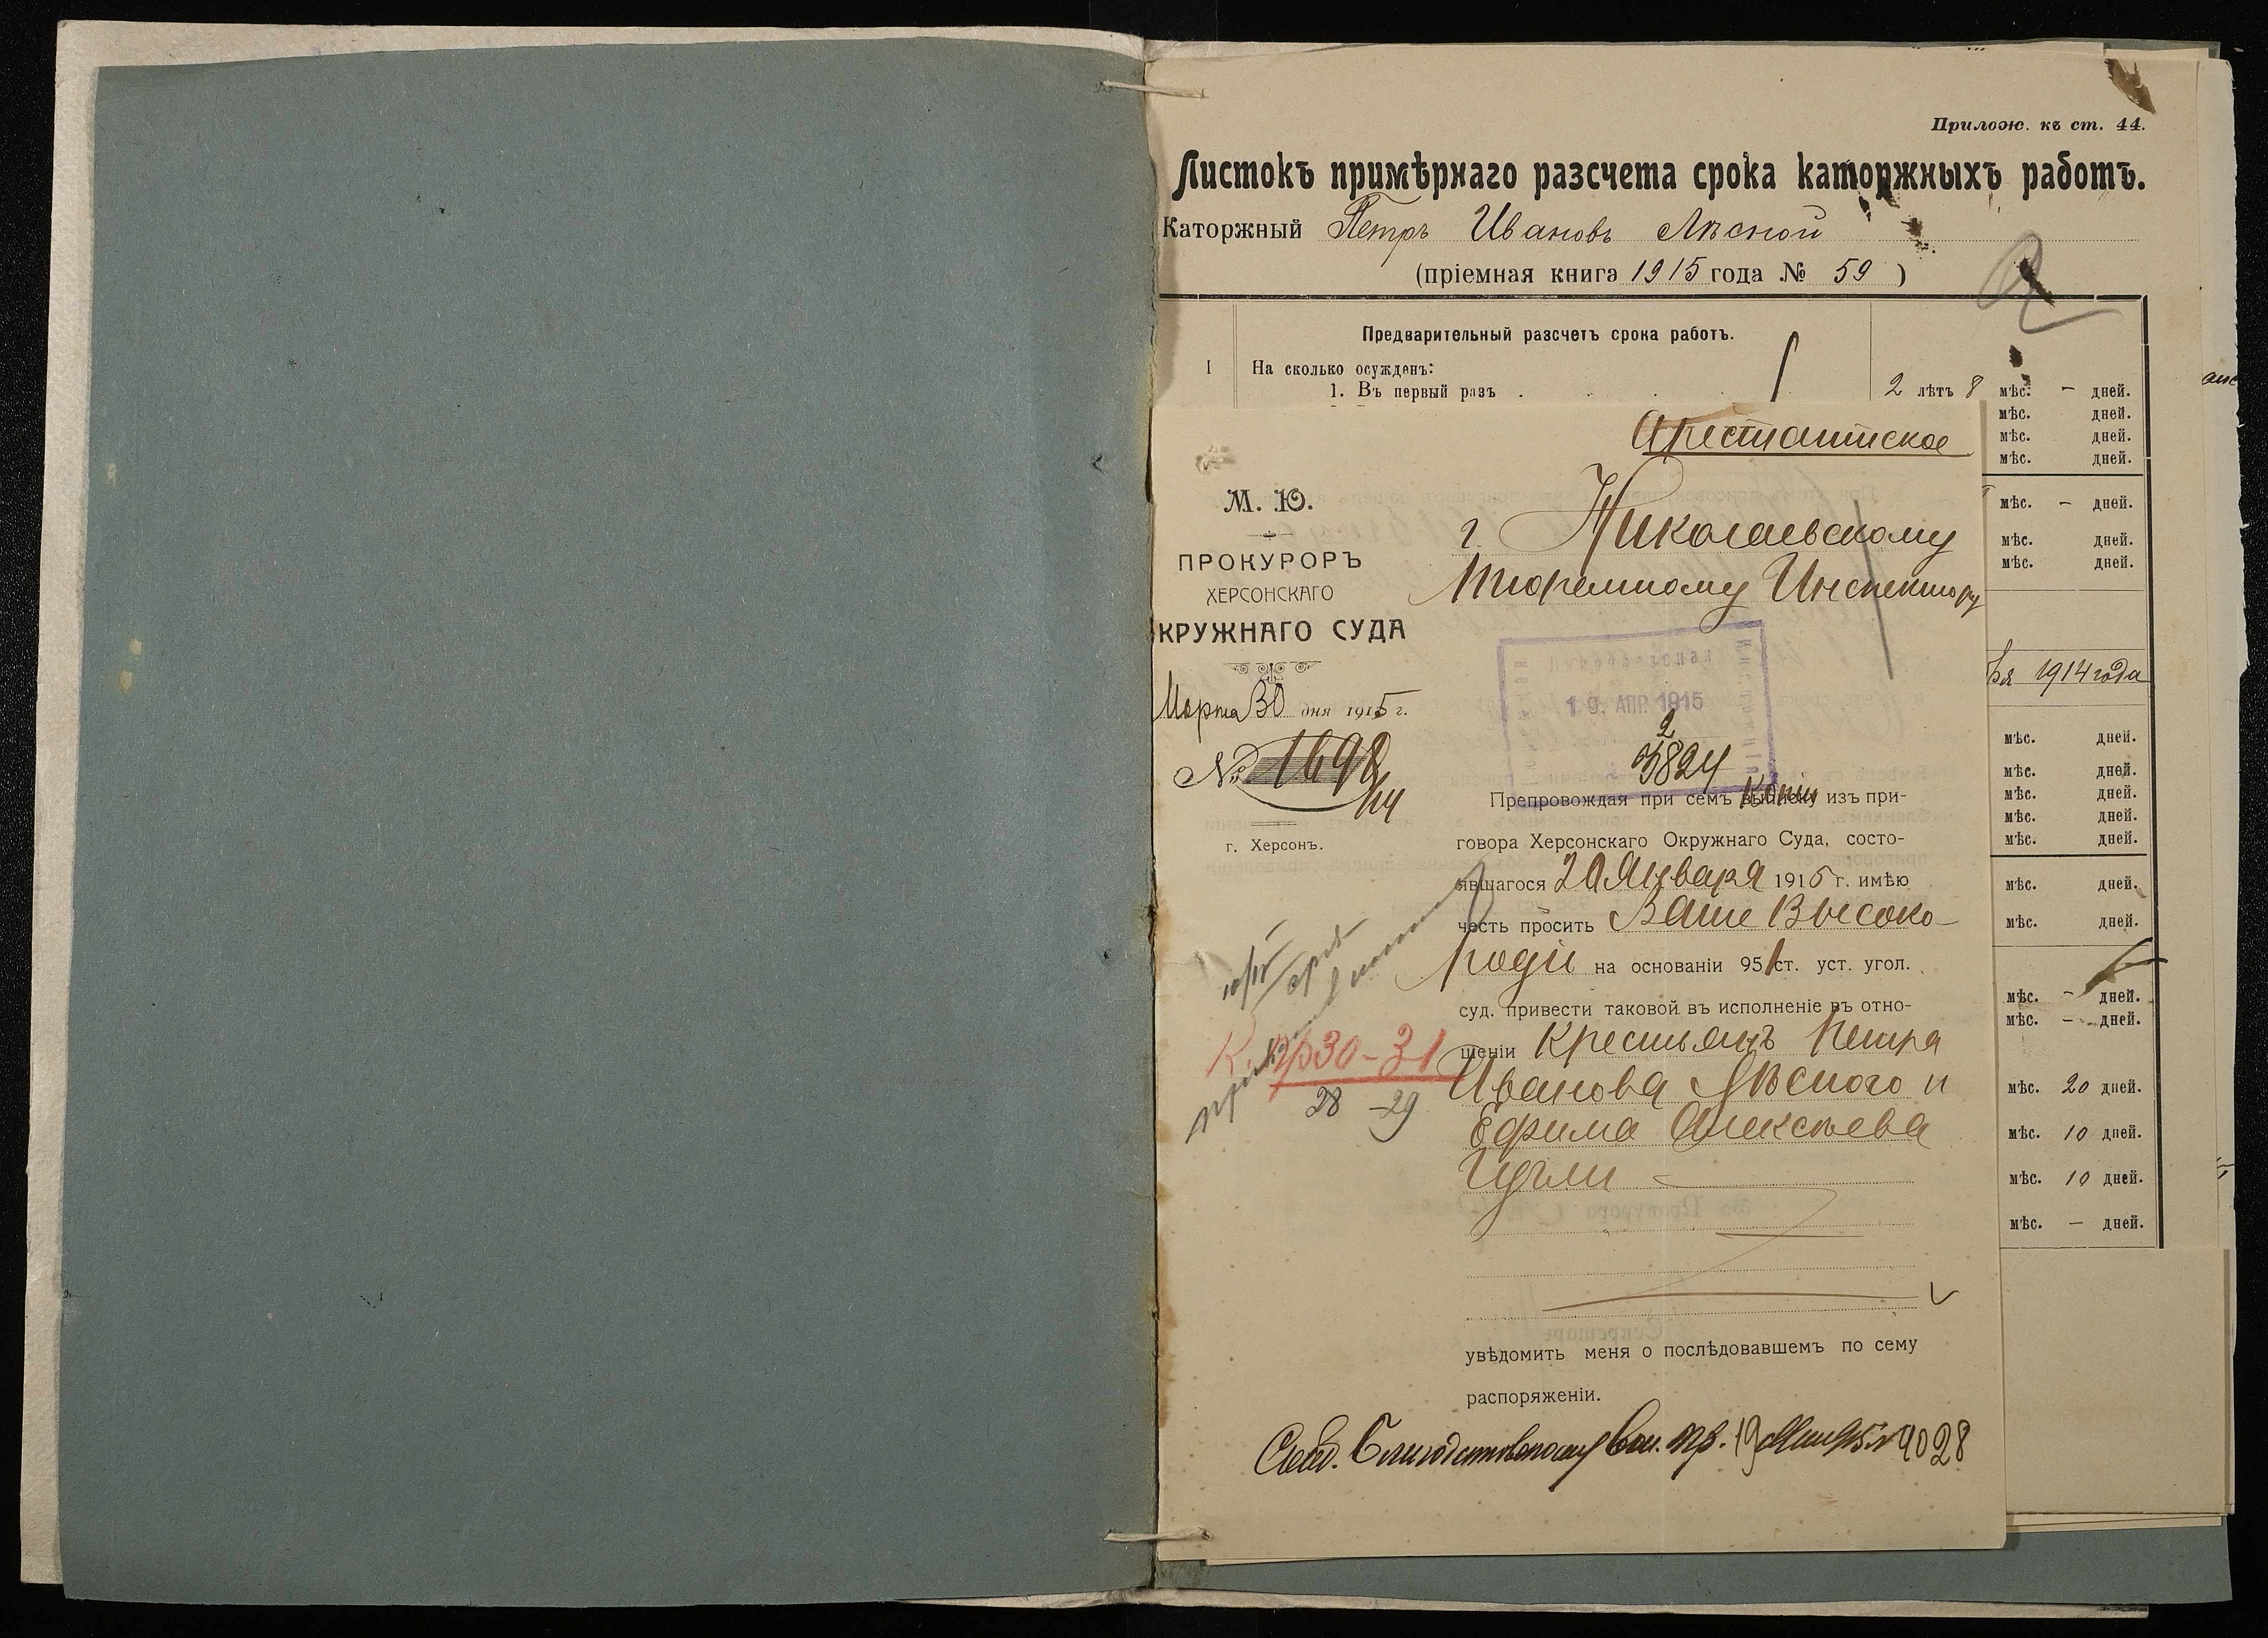 Прилож. къ ст. 44.
Листокъ примѣрнаго разсчета срока каторжныхъ работъ.
Каторжный Петръ Ивановъ Лѣсной
(пріемная книга 1915 года № 59 )
Предварительный разсчетъ срока работъ.
I На сколько осужденъ:
1. Въ первый разъ . . . . 2 лѣтъ 8 мѣс. – дней.
мѣс. дней.
мѣс. дней.
мѣс. дней.
мѣс. – дней.
мѣс. дней.
мѣс. дней.
бря 1914 года
мѣс. дней.
мѣс. дней.
мѣс. дней.
мѣс. дней.
мѣс. дней.
мѣс. дней.
мѣс. дней.
мѣс. – дней.
мѣс. – дней.
мѣс. 20 дней.
мѣс. 10 дней.
мѣс. 10 дней.
мѣс. – дней.
Арестантское
М. Ю.
ПРОКУРОРЪ
ХЕРСОНСКАГО
КРУЖНАГО СУДА
Марта 30 дня 1915 г.
№ 1698
г. Херсонъ.
г. Николаевскому
Тюремному Инспектору
АПР. 1915
3824
Препровождая при семъ копію изъ при-
говора Херсонскаго Окружнаго Суда, состо-
явшагося 20 Января 1915 г. имѣю
честь просить Ваше Высоко-
родіе на основаніи 951 ст. уст. угол.
суд. привести таковой въ исполненіе въ отно-
шеніи крестьянъ Петра
Иванова Лѣсного и
Ефима Алексѣева
увѣдомить меня о послѣдовавшемъ по сему
распоряженіи.
30-31
28-29
4028